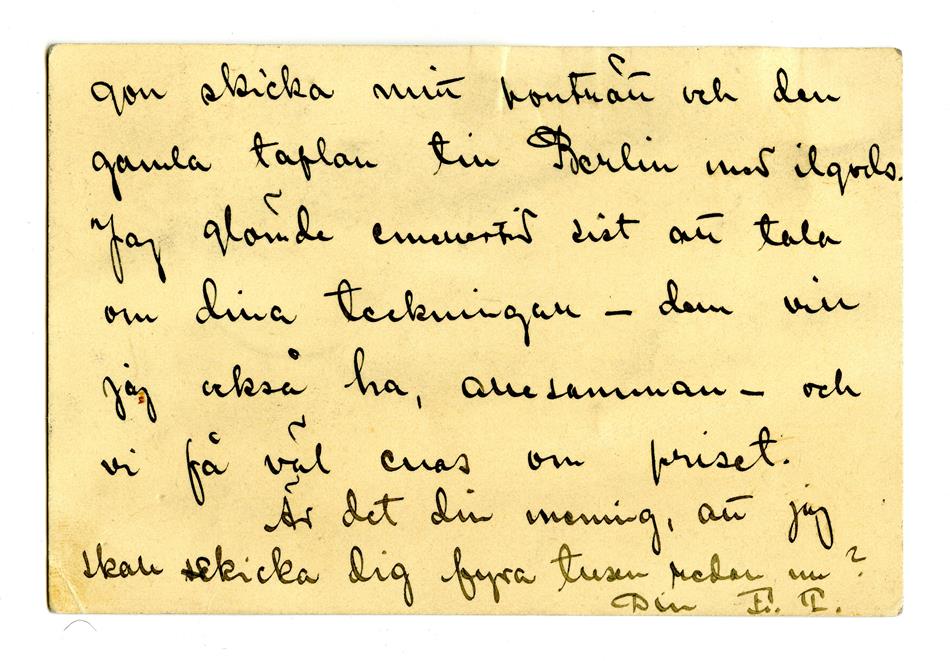 gon skicka mitt porträtt och den
gamla taflan till Berlin med ilgods.
Jag glömde emellertid sist att tala
om dina teckningar – dem vill
jag också ha, allesamman – och
vi få väl enas om priset.
Är det din mening, att jag
skall skicka dig fyra tusen redan nu?
Din E. T.